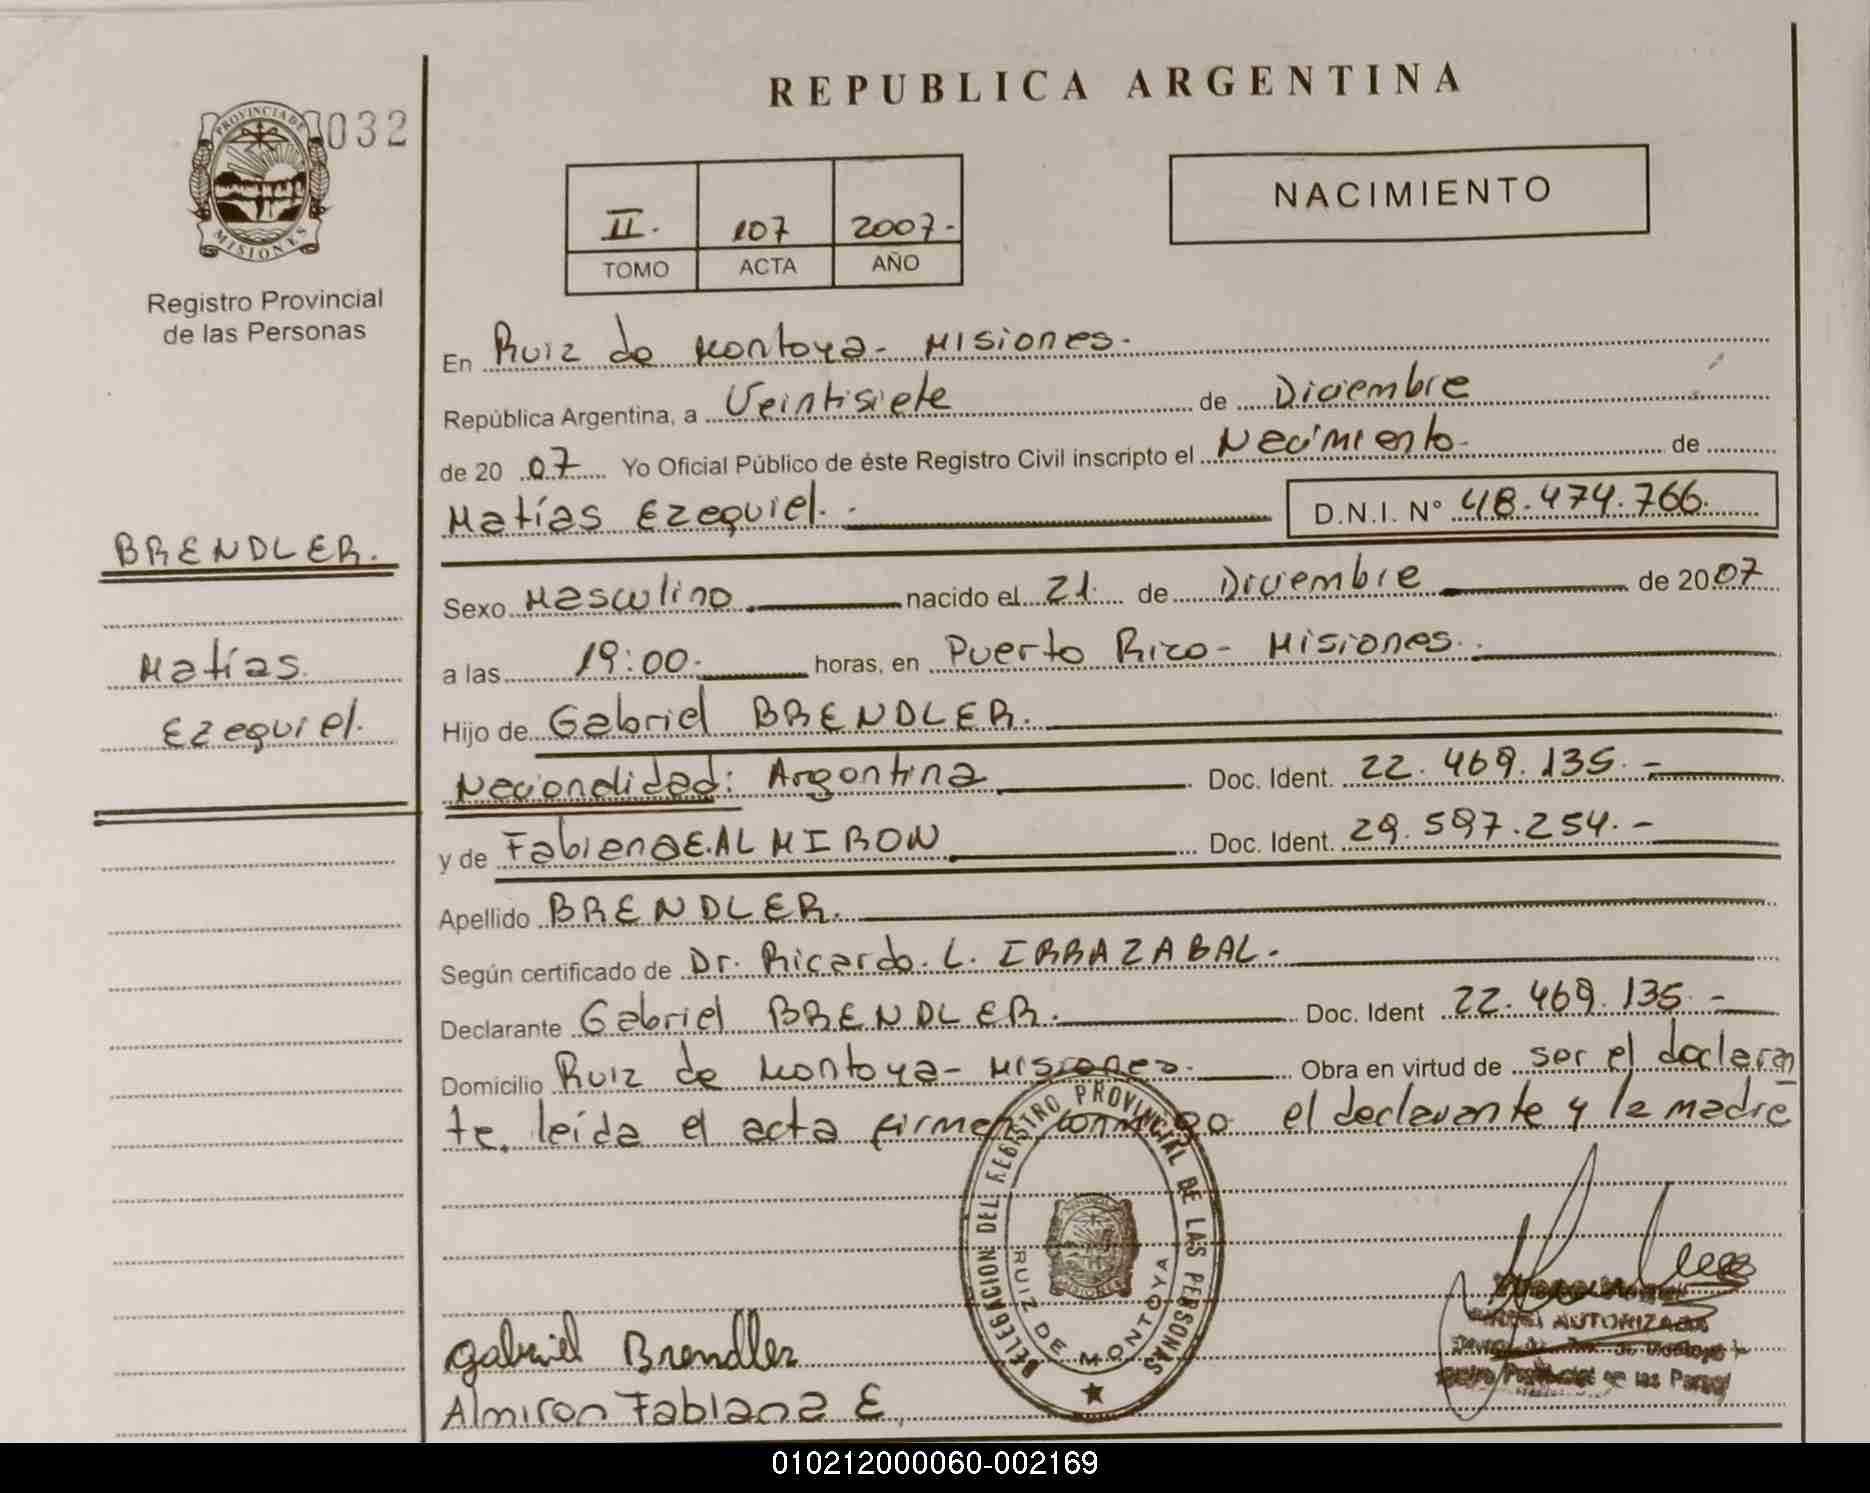 REPUBLICA ARGENTINA
PROVINCIA DE
MISIONES
032
Registro Provincial
de las Personas
II. 107 2007-
TOMO ACTA AÑO
NACIMIENTO
En Ruiz de Montoya- Misiones.
República Argentina, a Veintisiete de Diciembre
de 20 07 Yo Oficial Público de éste Registro Civil inscripto el Nacimiento- de
Matías Ezequiel. D.N.I. N° 48.474.766.
BRENDLER.
Matías
Ezequiel.
Sexo Masculino nacido el 21. de Diciembre de 2007
a las 19:00. horas, en Puerto Rico- Misiones.
Hijo de Gabriel BRENDLER.
Nacionalidad: Argentina Doc. Ident. 22.469.135.-
y de Fabiana E. ALMIRON Doc. Ident. 29.597.254.-
Apellido BRENDLER.
Según certificado de Dr. Ricardo. L. IRRAZABAL.
Declarante Gabriel BRENDLER. Doc. Ident 22.469.135.-
Domicilio Ruiz de Montoya- Misiones. Obra en virtud de ser el declaran
te. leída el acta firman conmigo el declarante y la madre
DELEGACION DEL REGISTRO PROVINCIAL DE LAS PERSONAS
RUIZ DE MONTOYA
MISIONES
AUTORIZADA
de las
Gabriel Brendler
Almiron Fabiana E.
010212000060-002169